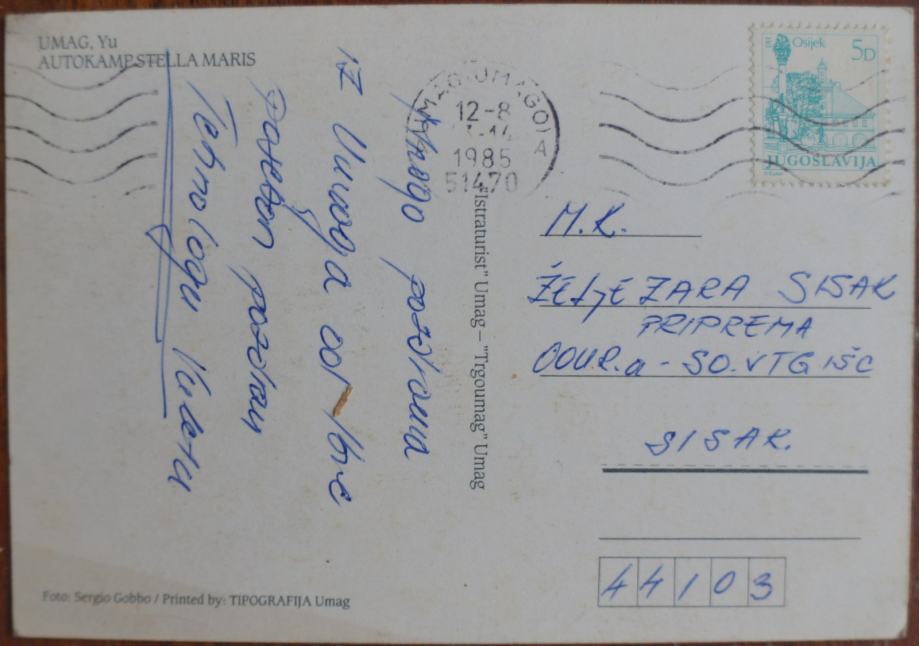 UMAG, Yu
AUTOKAMP STELLA MARIS
Mnogo pozdrava
iz Umaga od Ive
Poseban pozdrav
Tehnologu
"Istraturist" Umag – "Trgoumag" Umag
UMAG-UMAGO
A
12-8
1985
51470
Osijek
5D
JUGOSLAVIJA
M.K.
ŽELJEZARA SISAK
PRIPREMA
OOUR.a - SO.VTG IŠC
SISAK.
44103
Foto: Sergio Gobbo / Printed by: TIPOGRAFIJA Umag